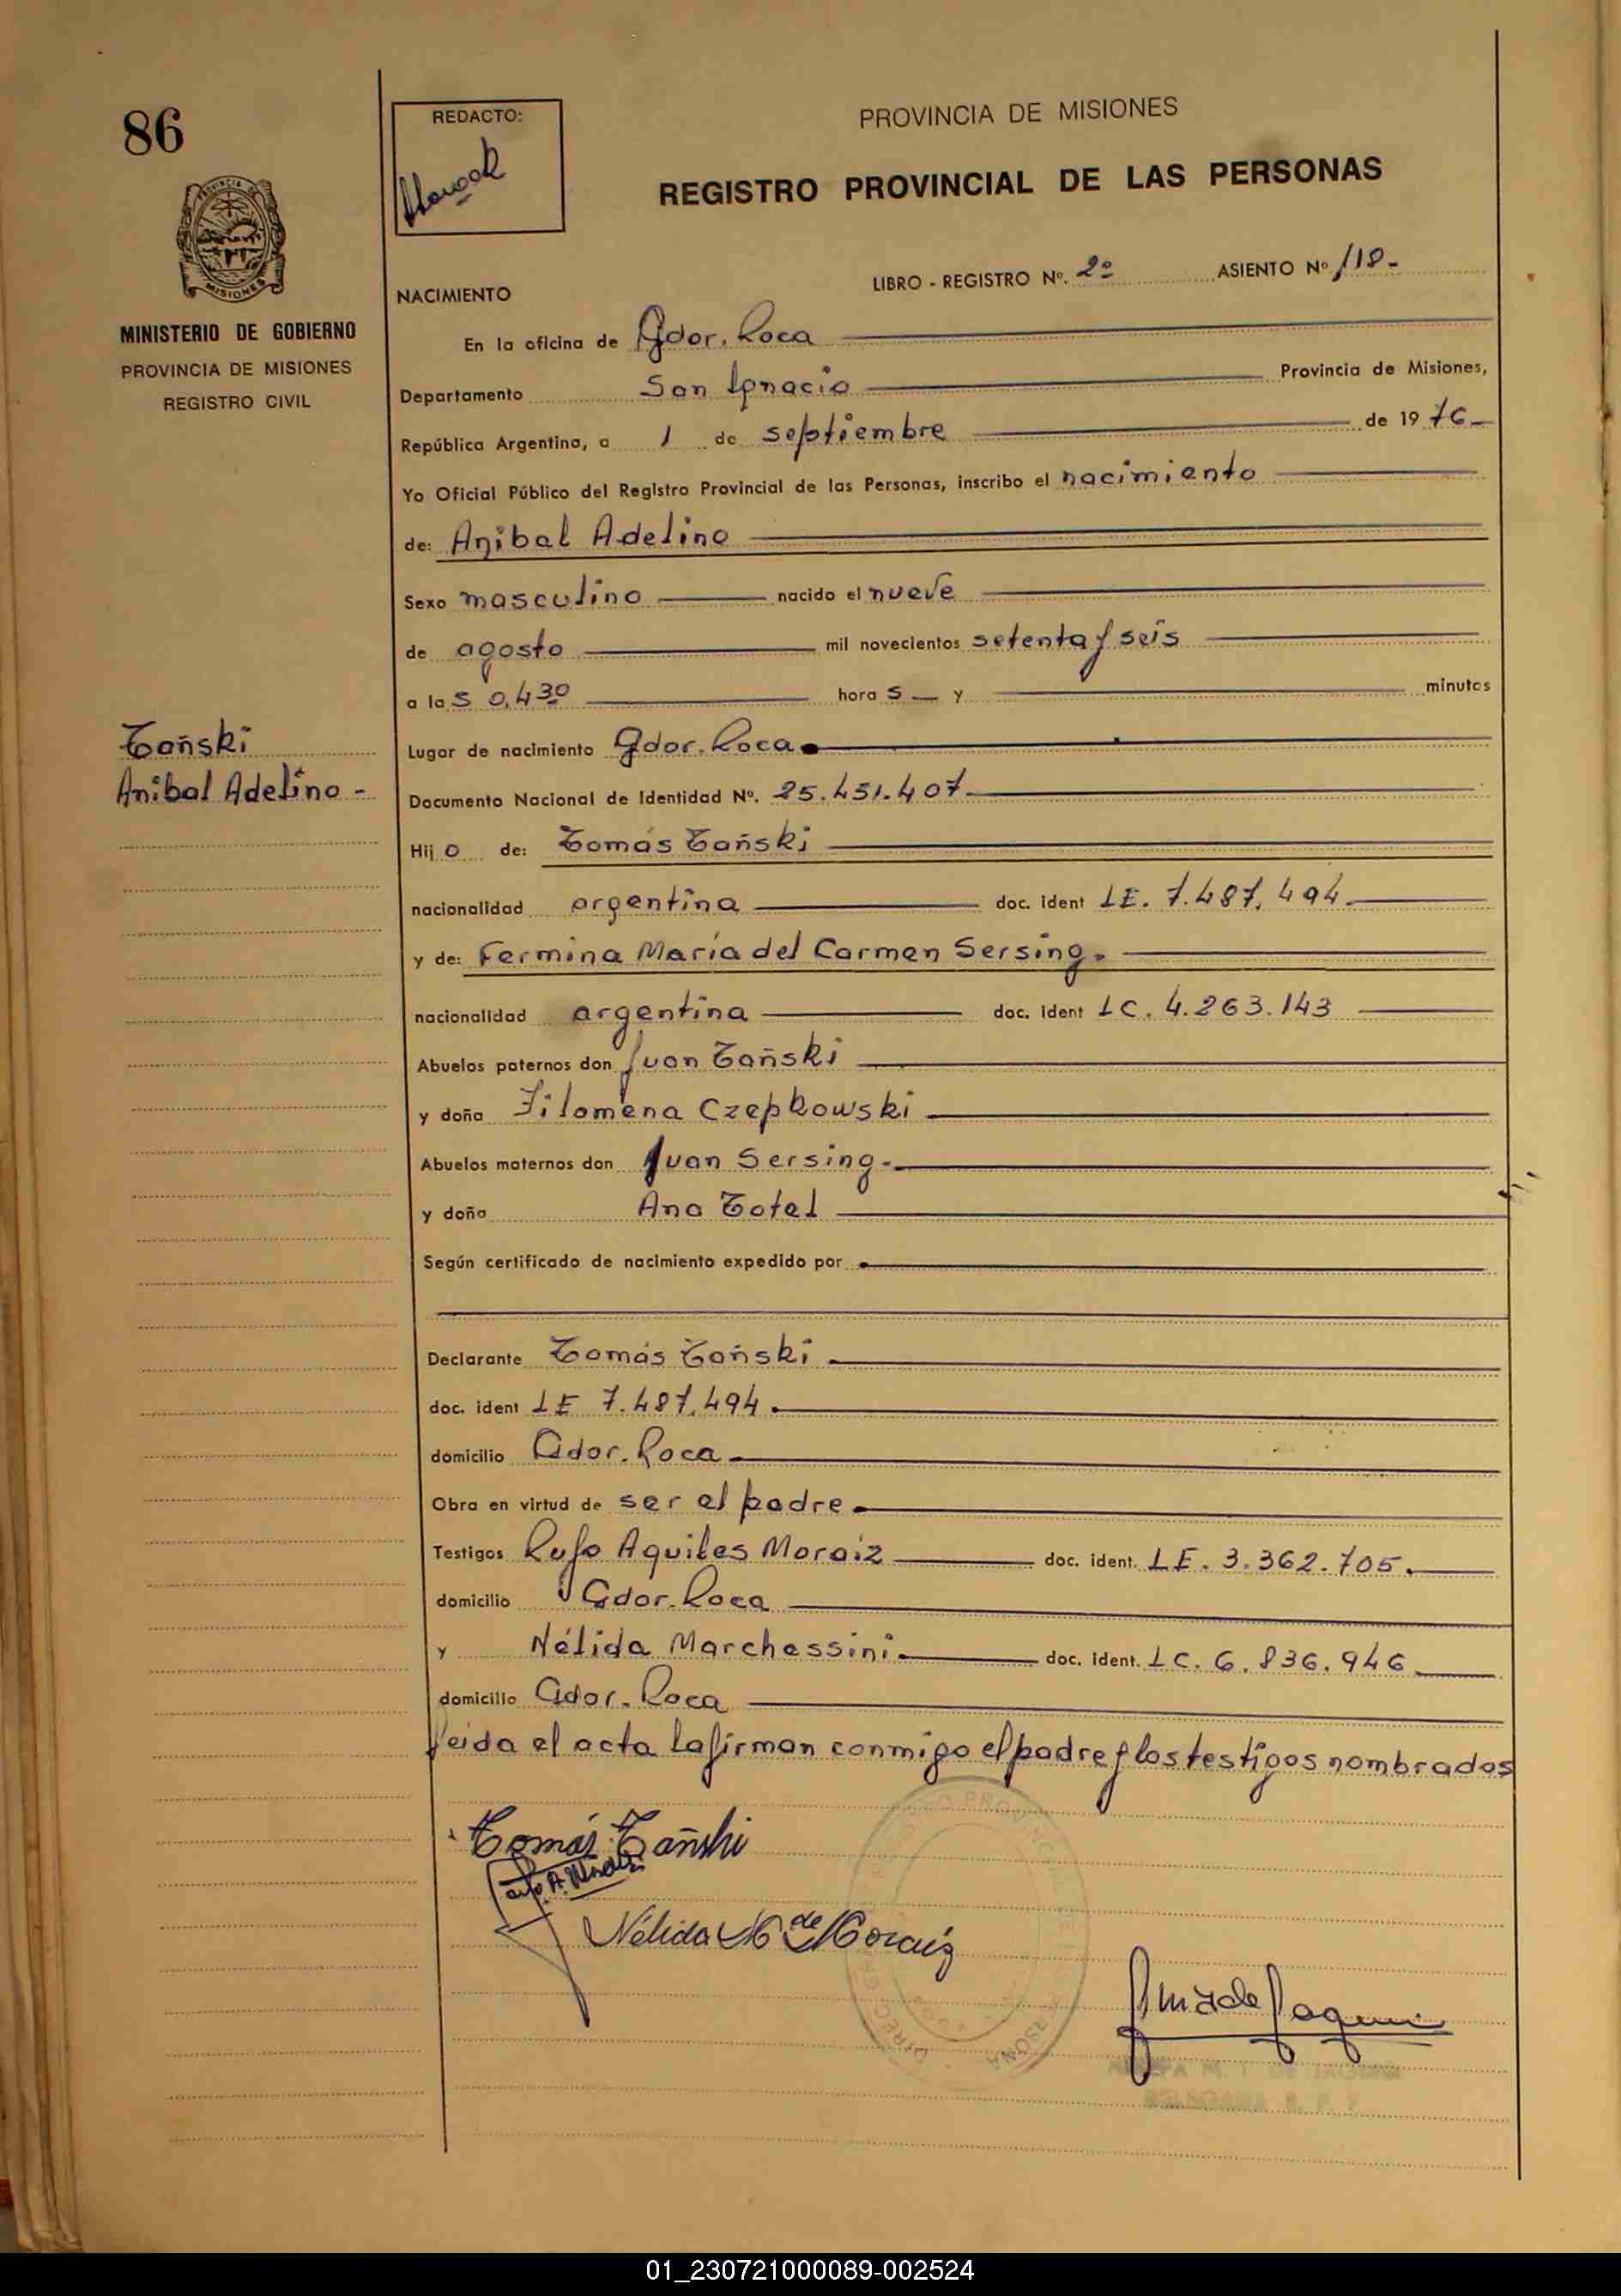 86
REDACTO:
PROVINCIA DE MISIONES
REGISTRO PROVINCIAL DE LAS PERSONAS
LIBRO - REGISTRO Nº. 2º ASIENTO Nº 118-
NACIMIENTO
MISIONES
MINISTERIO DE GOBIERNO
PROVINCIA DE MISIONES
REGISTRO CIVIL
En la oficina de Gdor. Roca
Departamento San Ignacio Provincia de Misiones,
República Argentina, a 1 de septiembre de 1976-
Yo Oficial Público del Registro Provincial de las Personas, inscribo el nacimiento
de: Anibal Adelino
Sexo masculino nacido el nueve
de agosto mil novecientos setenta y seis
a las 0,430 horas y minutos
Tañski
Anibal Adelino -
Lugar de nacimiento Gdor. Roca.
Documento Nacional de Identidad Nº. 25.451.407.
Hijo de: Tomás Tañski
nacionalidad argentina doc. ident LE. 7.487.494.
y de: Fermina María del Carmen Sersing.
nacionalidad argentina doc. ident LC. 4.263.143
Abuelos paternos don Juan Tañski
y doña Filomena Czepkowski
Abuelos maternos don Juan Sersing.
y doña Ana Totel
Según certificado de nacimiento expedido por
Declarante Tomás Tañski.
doc. ident LE 7.487.494.
domicilio Gdor. Roca.
Obra en virtud de ser el padre.
Testigos Rufo Aquiles Moraiz doc. ident. LE. 3.362.705.
domicilio Gdor. Roca
y Nélida Marchessini. doc. ident. LC. 6.836.946
domicilio Gdor. Roca
leida el acta la firman conmigo el padre y los testigos nombrados
Tomás Tañski
Nélida M de Moraiz
01_230721000089-002524